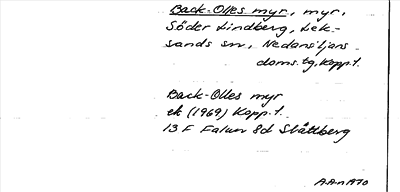 Back-Olles myr, myr,
Söder Lindberg, Lek-
sands sn, Nedansiljans
doms. tg, Kopp. l.
Back-Olles myr
ek (1969) Kopp. l.
13 F Falun 8d Slättberg